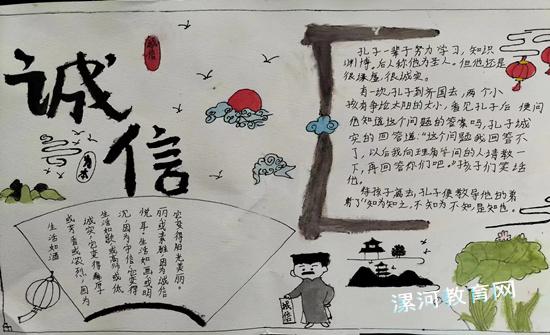 诚信
诚信
孔子一辈子努力学习，知识
渊博。后人称他为圣人。但他还是
很谦虚，很诚实。
有一次孔子到齐国去，两个小
孩有争论太阳的大小，看见孔子后，便问
他知道这个问题的答案吗，孔子诚
实的回答道："这个问题我回答不
了，以后我向 有学问的人请教一
下，再回答你们吧。"孩子们笑话
他。
待孩子离去，孔子便教导他的
"知为知之，不知为不知，是知也。
生活如酒
或芳香或浓烈，因为
诚实，它变得醇厚
生活如歌或高昂或低
沉，因为守信，它变得
悦耳，生活如画或明
丽或素雅，因为诚信
它变得阳光美丽。
诚信
漯河教育网